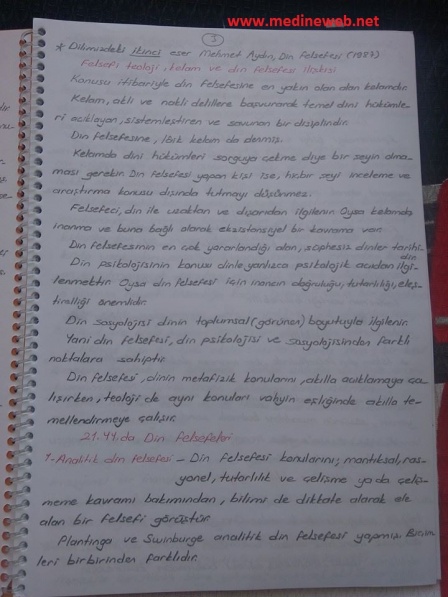 www.medineweb.net
3
* Dilimizdeki ikinci eser Mehmet Aydın, Din Felsefesi (1987)
Felsefi teoloji, kelam ve din felsefesi ilişkisi
Konusu itibariyle din felsefesine en yakın olan alan kelamdır.
Kelam, akli ve nakli delillere başvurarak temel dini hükümle-
ri açıklayan, sistemleştiren ve savunan bir disiplindir.
Din felsefesine, ilk kelam da denmiş.
Kelamda dini hükümleri sorguya çekme diye bir şeyin olma-
ması gerekir. Din felsefesi yapan kişi ise, hiçbir şeyi inceleme ve
araştırma konusu dışında tutmayı düşünmez.
Felsefeci, din ile uzaktan ve dışarıdan ilgilenir. Oysa kelamda
inanma ve buna bağlı olarak ekzistansiyel bir kavrama var.
Din felsefesinin en çok yararlandığı alan, şüphesiz dinler tarihi-
dir.
Din psikolojisinin konusu dinle yanlızca psikolojik açıdan ilgi-
lenmektir. Oysa din felsefesi için inancın doğruluğu, tutarlılığı, eleş-
tiriliği önemlidir.
Din sosyolojisi dinin toplumsal (görünen) boyutuyla ilgilenir.
Yani din felsefesi, din psikolojisi ve sosyolojisinden farklı
noktalara sahiptir.
Din felsefesi, dinin metafizik konularını, akılla açıklamaya ça-
lışırken, teoloji de aynı konuları vahyin eşliğinde akılla te-
mellendirmeye çalışır.
21.yy.da Din Felsefeleri
1-Analitik din felsefesi - Din felsefesi konularını; mantıksal, ras-
yonel, tutarlılık ve çelişme ya da çeliş-
meme kavramı bakımından, bilimi de dikkate alarak ele
alan bir felsefi görüştür.
Plantinga ve Swinburge analitik din felsefesi yapmış. Biçim-
leri birbirinden farklıdır.